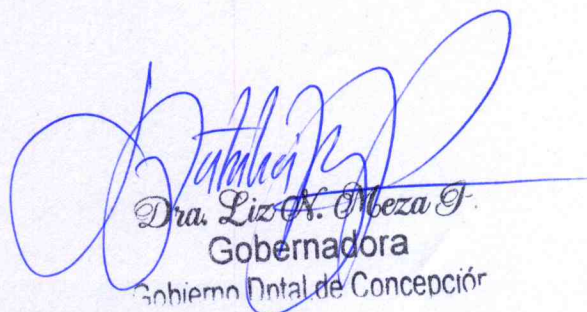 Dra. Liz N. Meza G.
Gobernadora
Gobierno Dptal de Concepción